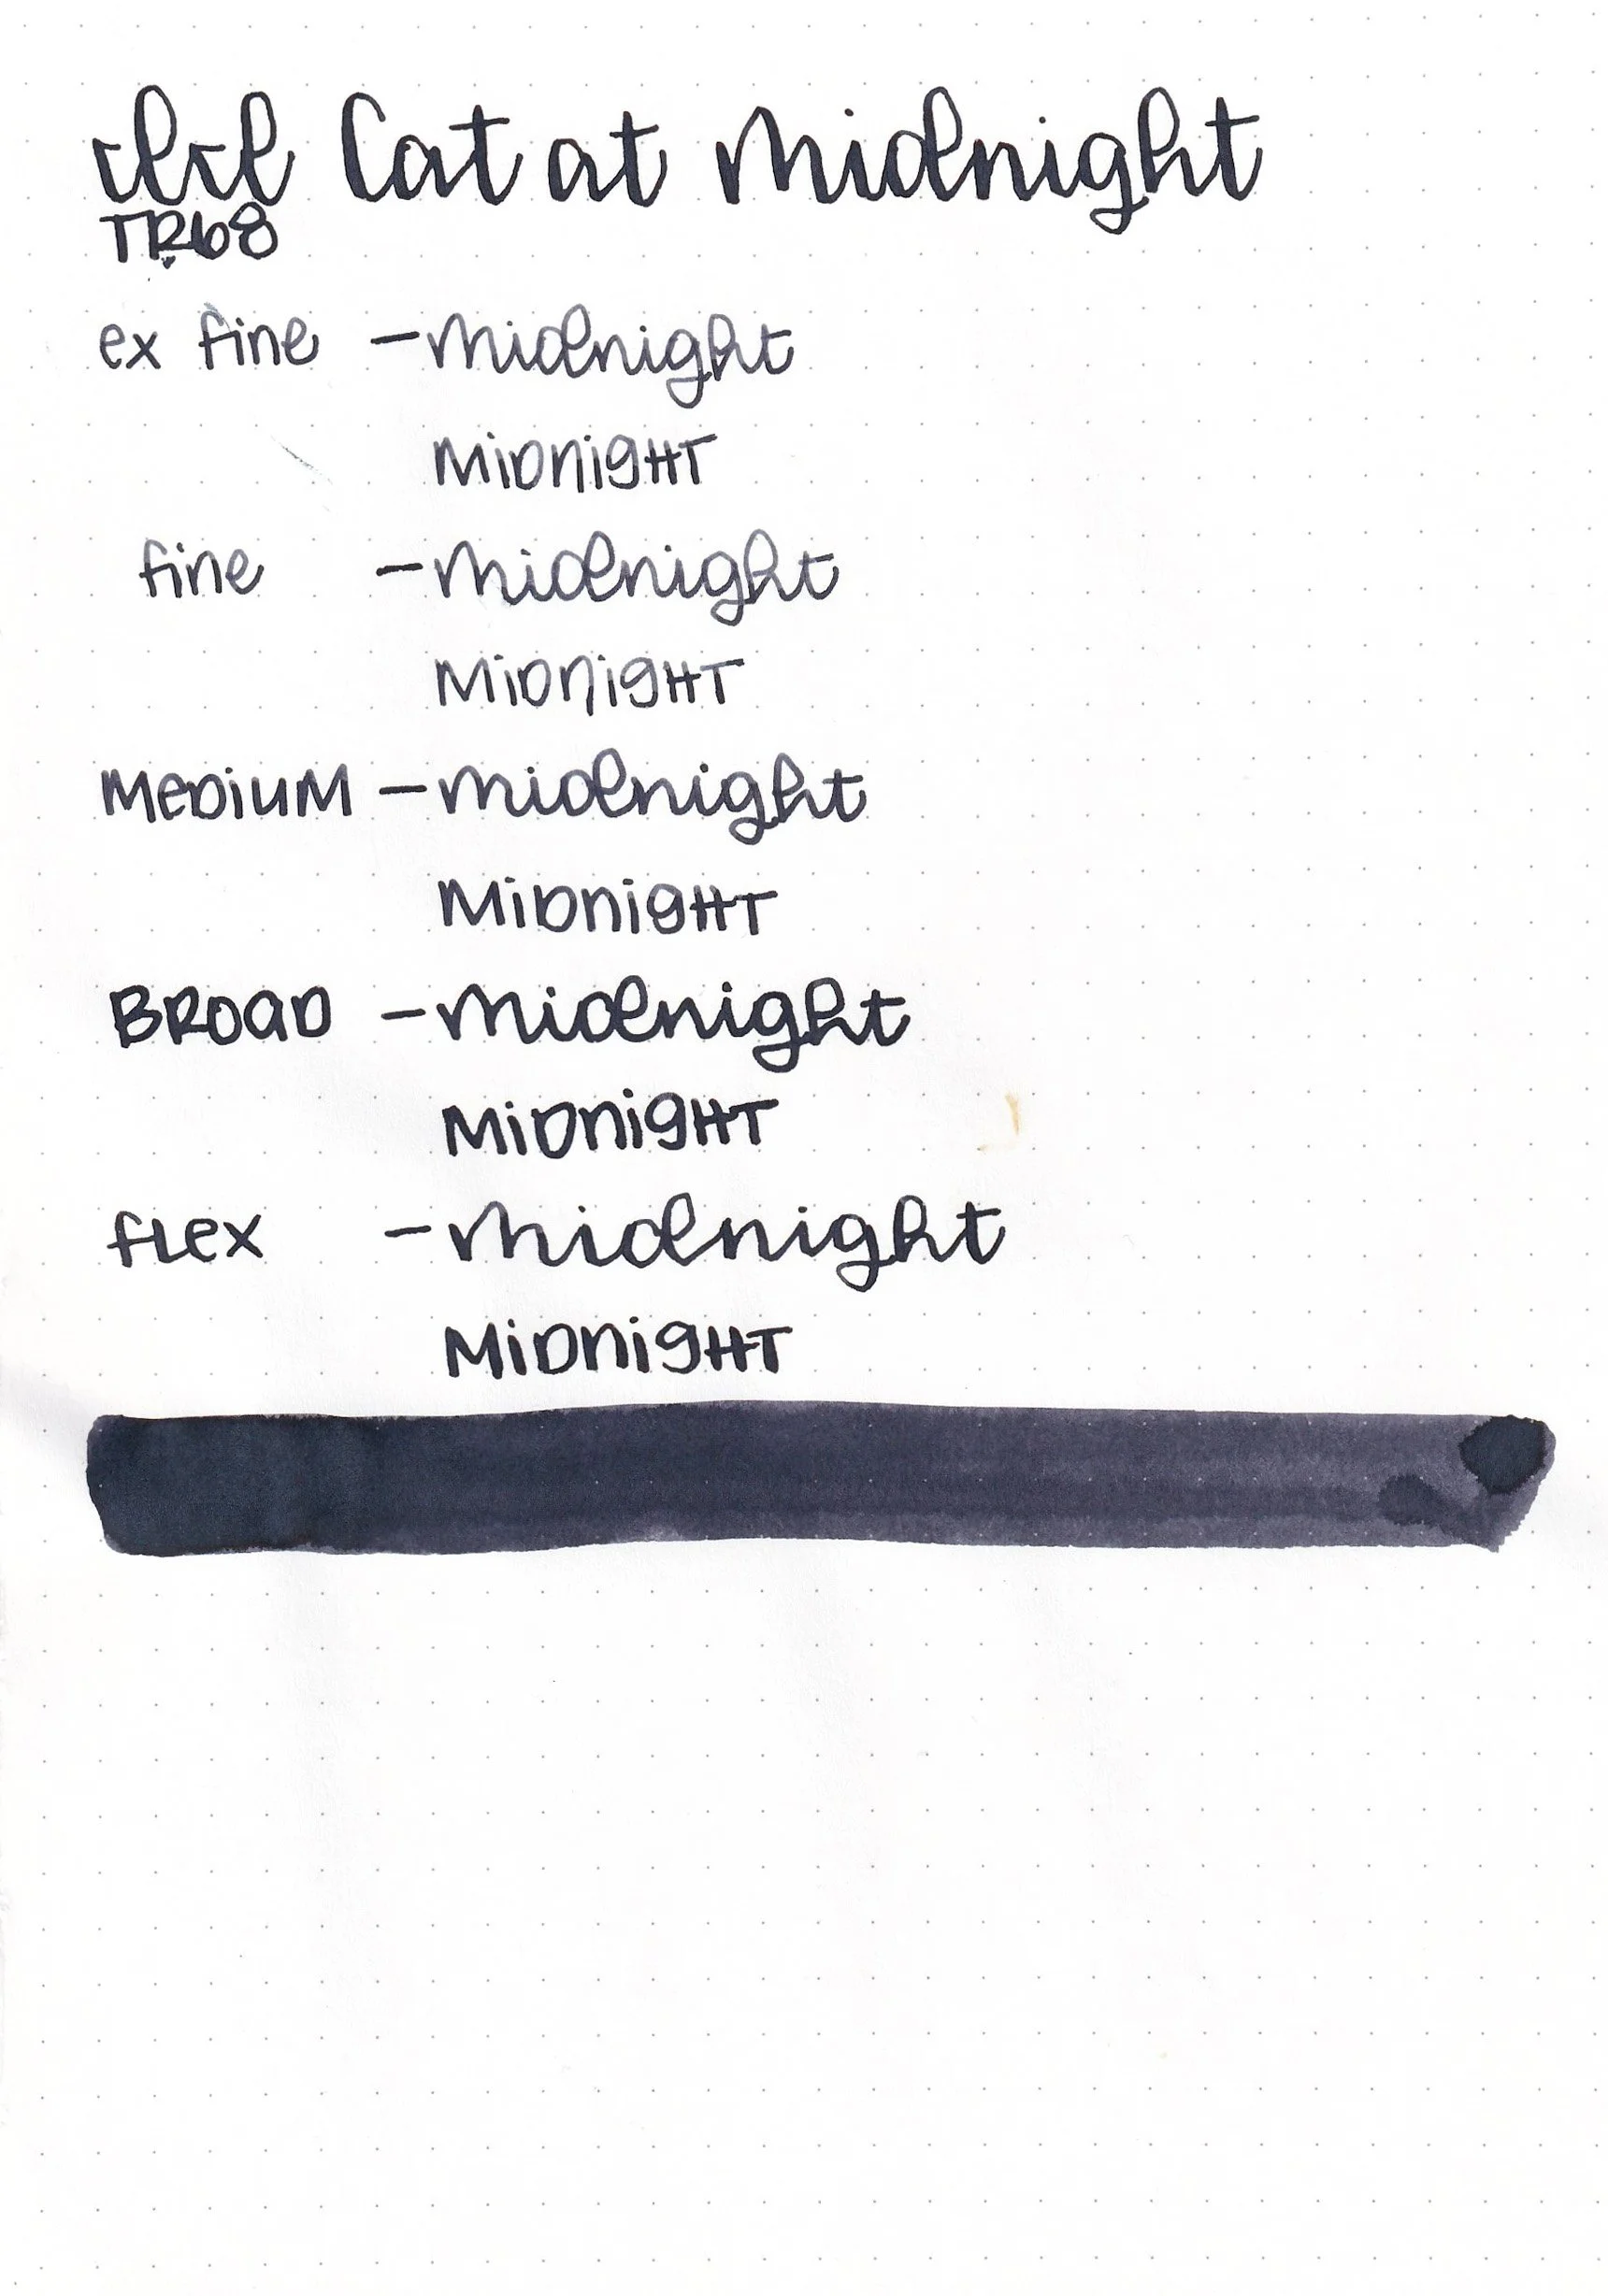 Cat at Midnight
TR68
ex fine - Midnight
MIDNIGHT
fine - Midnight
MIDNIGHT
MEDIUM - Midnight
MIDNIGHT
BROAD - Midnight
MIDNIGHT
flex - Midnight
MIDNIGHT